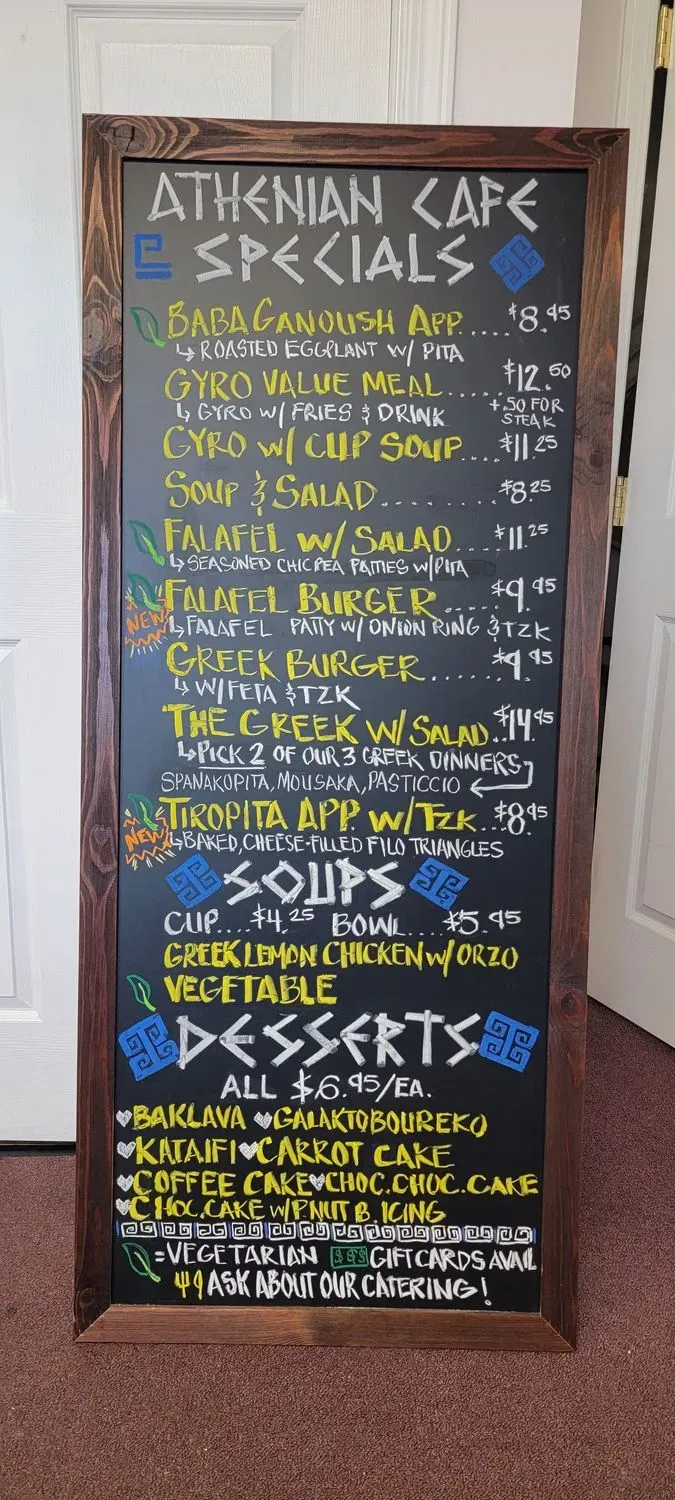 ATHENIAN CAFE
SPECIALS
BABA GANOUSH APP.... $8.95
↳ ROASTED EGGPLANT W/ PITA
GYRO VALUE MEAL..... $12.50
↳ GYRO W/ FRIES & DRINK +.50 FOR STEAK
GYRO W/ CUP SOUP.... $11.25
SOUP & SALAD........ $8.25
FALAFEL W/ SALAD.... $11.25
↳ SEASONED CHICPEA PATTIES W/PITA
NEW FALAFEL BURGER..... $9.95
↳ FALAFEL PATTY W/ ONION RING & TZK
GREEK BURGER...... $9.95
↳ W/FETA & TZK
THE GREEK W/ SALAD.. $14.95
↳ PICK 2 OF OUR 3 GREEK DINNERS
SPANAKOPITA, MOUSAKA, PASTICCIO ←
NEW TIROPITA APP W/ TZK... $8.95
↳ BAKED, CHEESE-FILLED FILO TRIANGLES
SOUPS
CUP.... $4.25 BOWL.... $5.95
GREEK LEMON CHICKEN W/ ORZO
VEGETABLE
DESSERTS
ALL $6.95/EA.
BAKLAVA GALAKTOBOUREKO
KATAIFI CARROT CAKE
COFFEE CAKE CHOC.CHOC.CAKE
CHOC.CAKE W/PNUT B. ICING
=VEGETARIAN $$$ GIFT CARDS AVAIL
ASK ABOUT OUR CATERING!